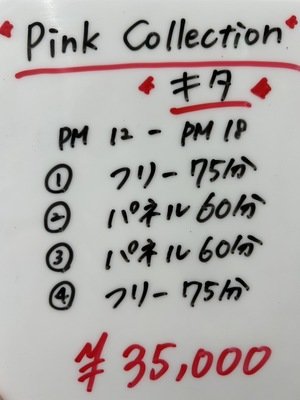 Pink Collection
キタ
PM 12 - PM 18
① フリー 75分
② パネル 60分
③ パネル 60分
④ フリー 75分
¥ 35,000